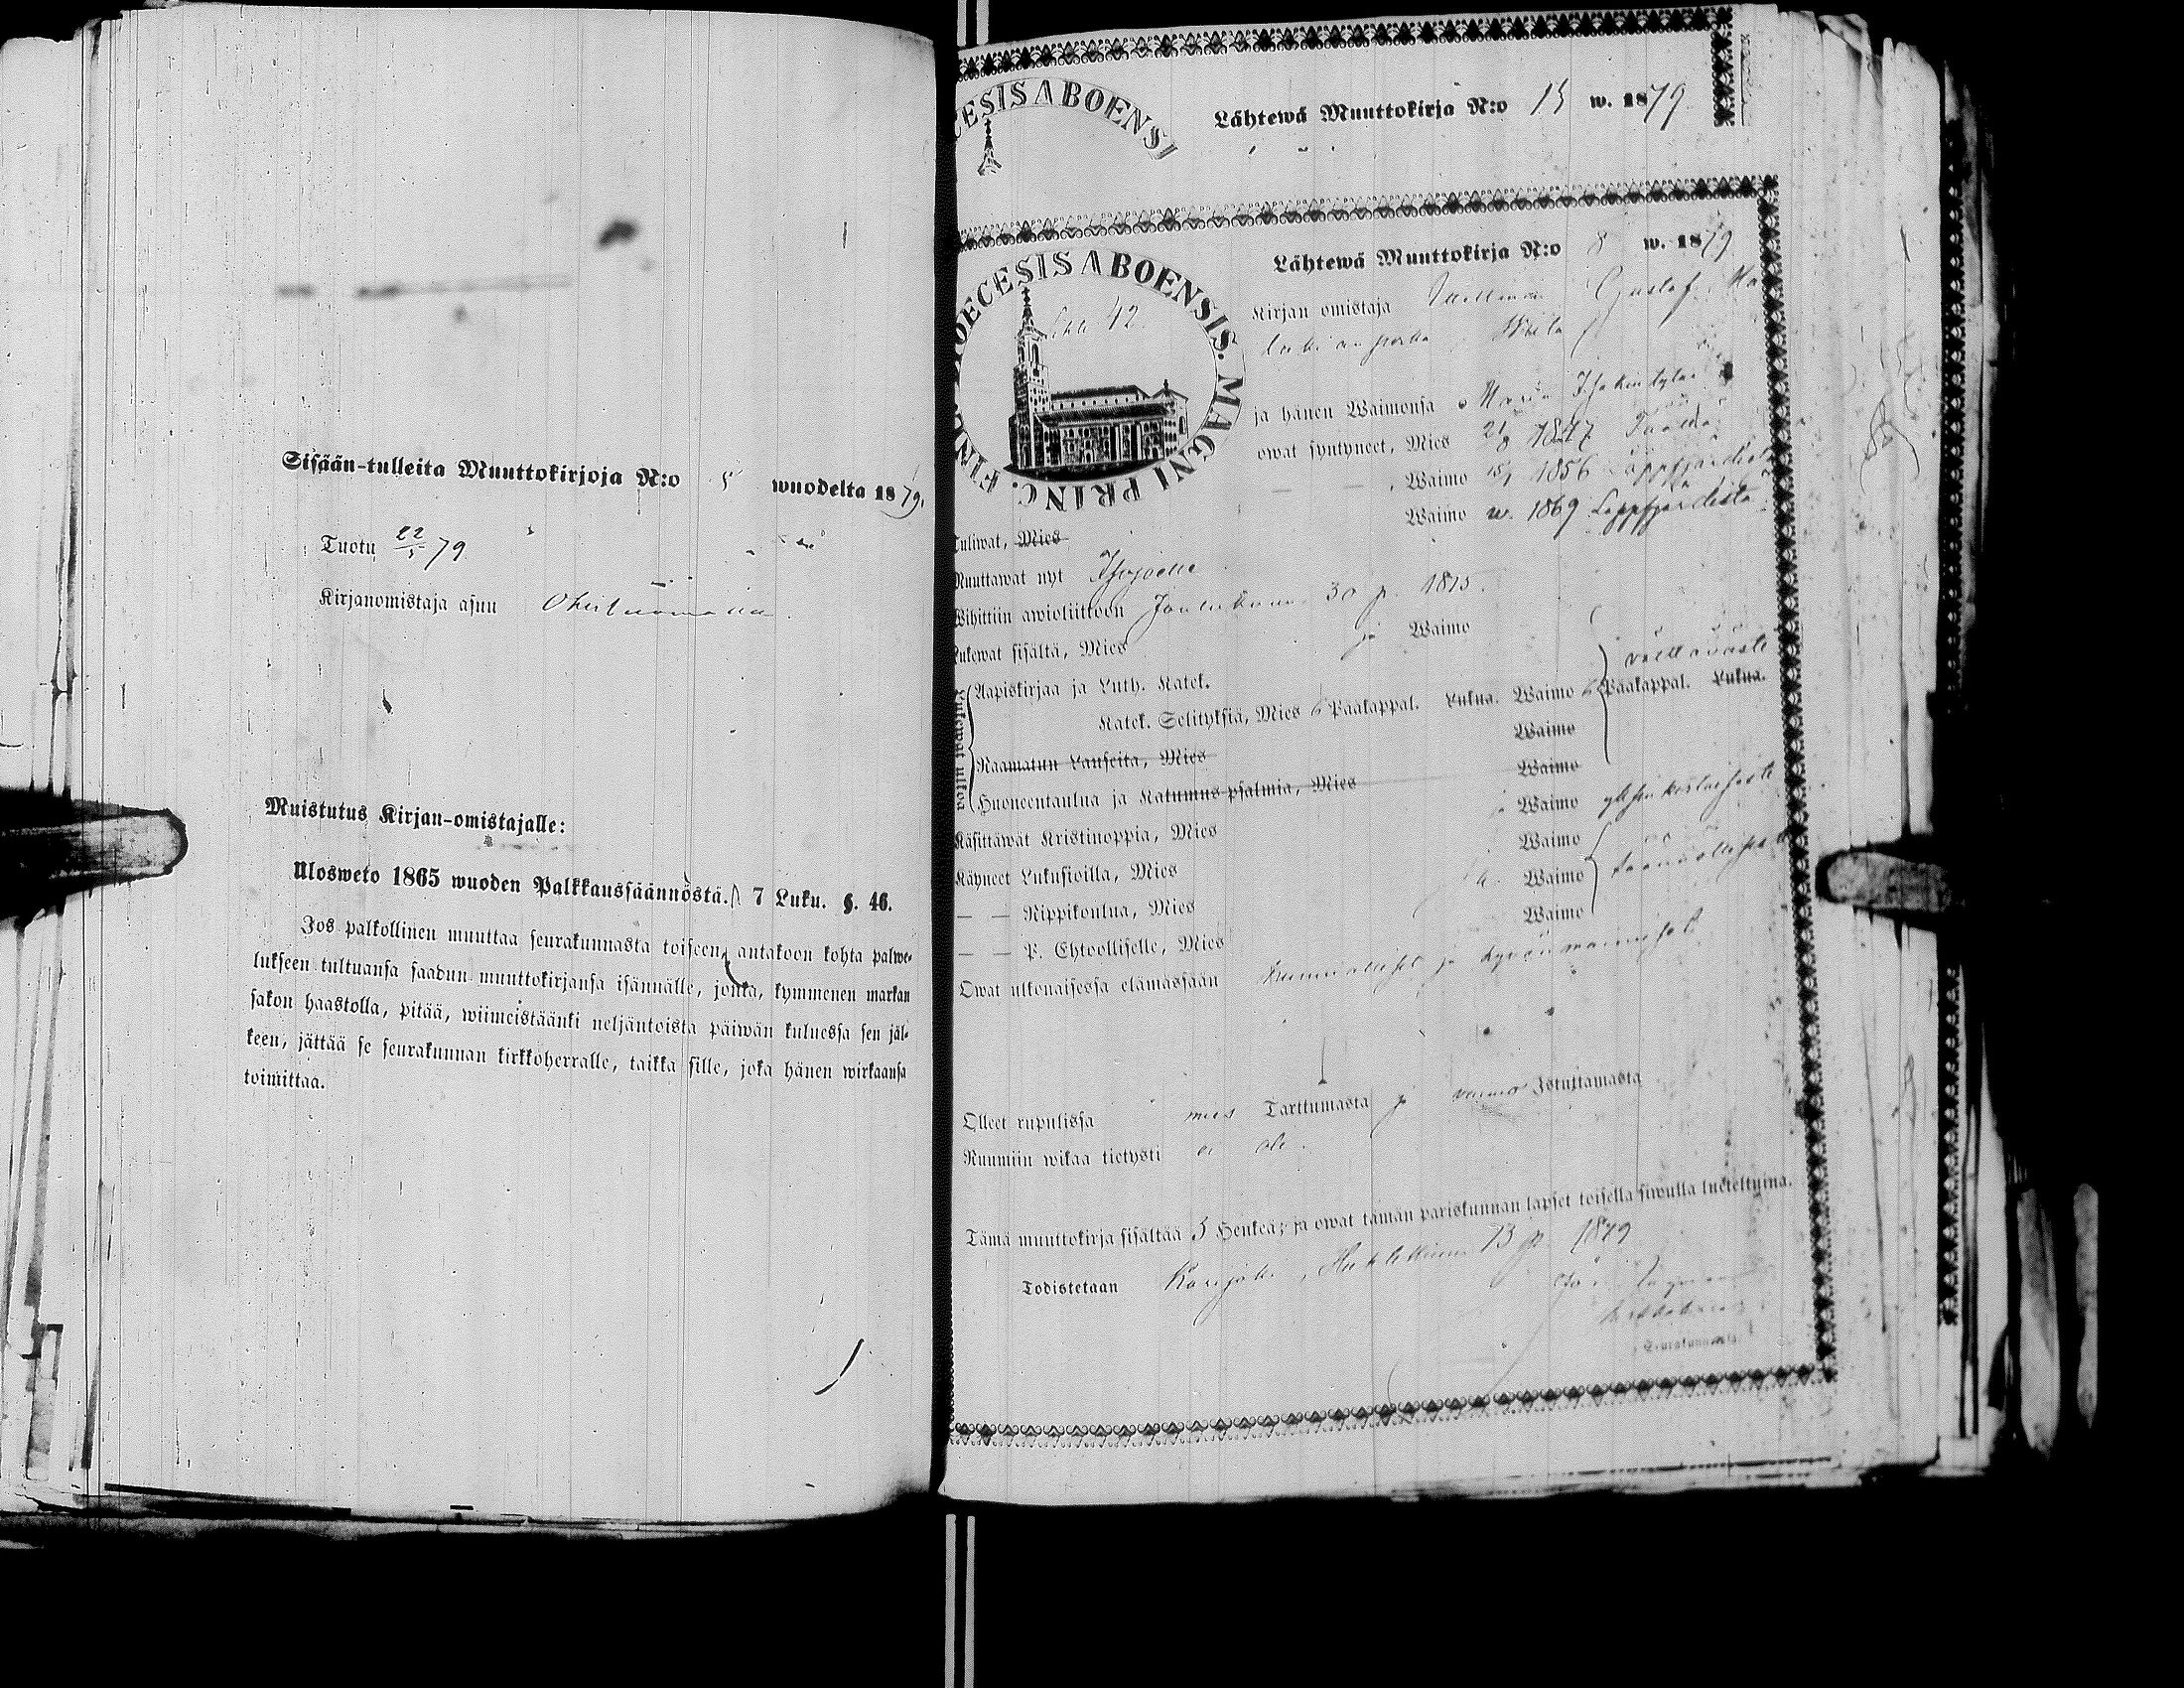 Sisään-tulleita Muuttokirjoja N:o 5 wuodelta 1879.
Tuotu 22/5 79
Kirjanomistaja asuu
Muistutus Kirjan-omistajalle:
Ulosweto 1865 wuoden Palkkaussäännöstä. 7 Luku. §. 46.
Jos palkollinen muuttaa seurakunnasta toiseen, antakoon kohta palwe-
lukseen tultuansa saadun muuttokirjansa isännälle, jonka, kymmenen markan
sakon haastolla, pitää, wiimeistäänki neljäntoista päiwän kuluessa sen jäl-
keen, jättää se seurakunnan kirkkoherralle, taikka sille, joka hänen wirkaansa
toimittaa.
ESIS ABOENSI
Lähtewä Muuttokirja N:o 15 w. 1879
DIOECESIS ABOENSIS. MAGNI PRINC. FINL.
42
Lähtewä Muuttokirja N:o 8 w. 1879
Kirjan omistaja Gustaf
ja hänen Waimonsa Maria
owat syntyneet, Mies 21/8 1847
— — , Waimo 1856 Lappfjärdistä
Tuliwat, Mies Waimo w. 1869 Lappfjärdistä
Muuttawat nyt Isojoelle
Wihittiin awioliittoon Joulukuun 30 p. 1875.
Lukewat sisältä, Mies ja Waimo
Lukewat ulkoa
Aapiskirjaa ja Luth. Katek. välttävästi
Katek. Selityksiä, Mies 6 Pääkappal. Lukua. Waimo 6 Pääkappal. Lukua.
Raamatun Lauseita, Mies Waimo
Huoneentaulua ja Katumus psalmia, Mies Waimo
Käsittäwät Kristinoppia, Mies ja Waimo
Käyneet Lukusioilla, Mies Waimo
— — Rippikoulua, Mies Waimo säännöllisesti
— — P. Ehtoolliselle, Mies Waimo
Owat ulkonaisessa elämässään kunnialliset ja hyvänmainiset
Olleet rupulissa mies Tarttumasta ja vaimo Istuttamasta
Ruumiin wikaa tietysti ei ole.
Tämä muuttokirja sisältää 3 Henkeä; ja owat tämän pariskunnan lapset toisella siwulla lueteltuina.
Todistetaan Karijoki, Huhtikuun 13 p 1879
Seurakunnasta